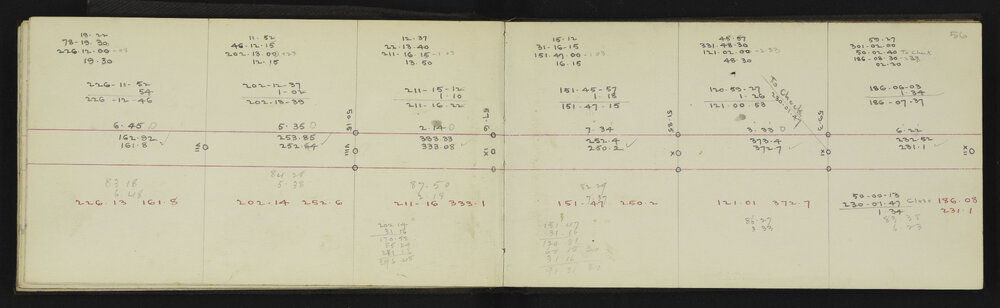 56
19.22
78-19.30
226.12.00 -03
19.30
226-11-52
54
226-12-46
6.45
162.92
161.8
VII
83 18
6 48
226.13 161.8
11.52
46-12-15
202.13.00
12.15
202-12-37
1-02
202-13-39
5.35
253.85
252.64
50.15
VIII
84 25
5 38
202.14 252.6
202 14
31 16
12.37
22-13-40
211-16-15 -1.03
13.50
211-15-12
1.10
211-16-22
2.14
333.33
333.08
57-9
IX
87.50
211-16 333.1
15.12
31-16-15
151.47.00 -1.03
16.15
151-45-57
1.18
151-47.15
7.34
252.4
250.2
51.85
X
82 29
151.47 250.2
151 47
31 16
45.57
331-48-30
121-02.00
48.30
120.59-27
1.26
121 00.53
To Check
3.33
373.4
372.7
59-3
XI
121.01 372.7
86.27
3.33
59.27
301-02.00
50-02.40 To Check
186-08-30
02.20
186-06-03
1.34
186-07.37
6.22
232.52
231.1
XII
50-00-13
230-07.47 Close 186.08
1.34 231.1
83 38
6 23